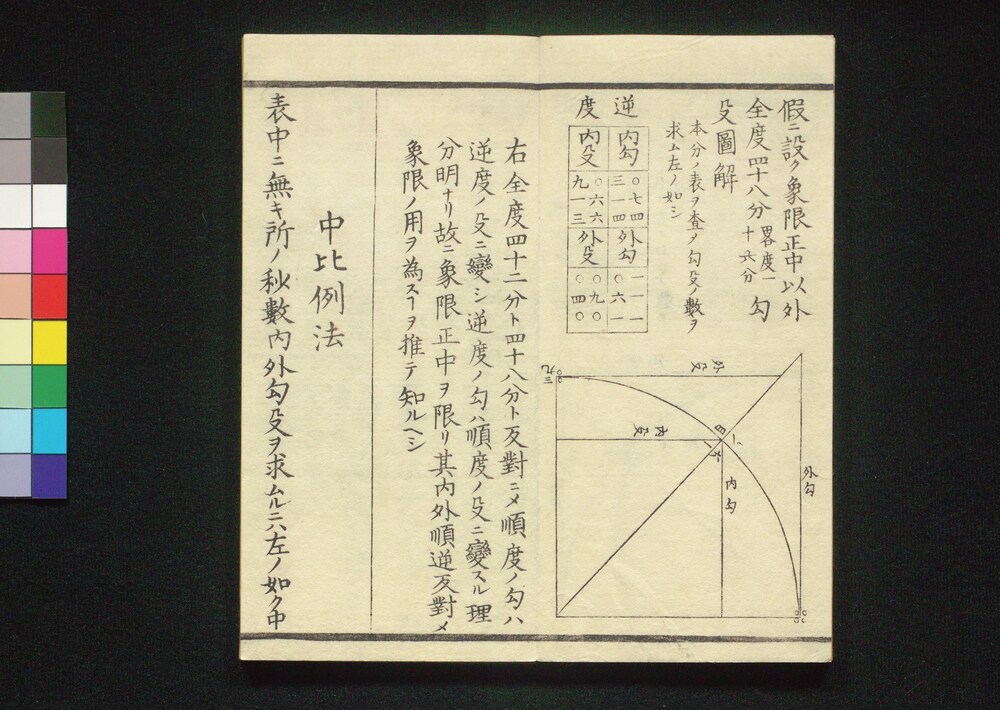 假ニ設ク象限正中以外
全度四十八分 畧度一十六分 勾
殳圖解
本分ノ表ヲ査メ勾殳ノ數ヲ
求ム左ノ如シ
逆度
内勾 ○七四 三一四 外勾 一一一 ○六一
内殳 ○六六 九一三 外殳 ○九○ ○四○
外殳
内殳
内勾
外勾
右全度四十二分ト四十八分ト反對ニメ順度ノ勾ハ
逆度ノ殳ニ變シ逆度ノ勾ハ順度ノ殳ニ變スル理
分明ナリ故ニ象限正中ヲ限リ其内外順逆反對メ
象限ノ用ヲ為スヿヲ推テ知ルヘシ
中比例法
表中ニ無キ所ノ秒數内外勾殳ヲ求ムルニハ左ノ如ク中